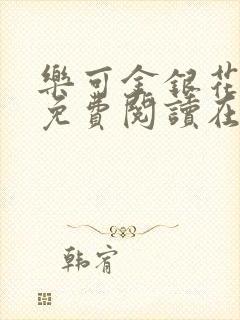 樂可金銀花
免費閱讀在
韩宥